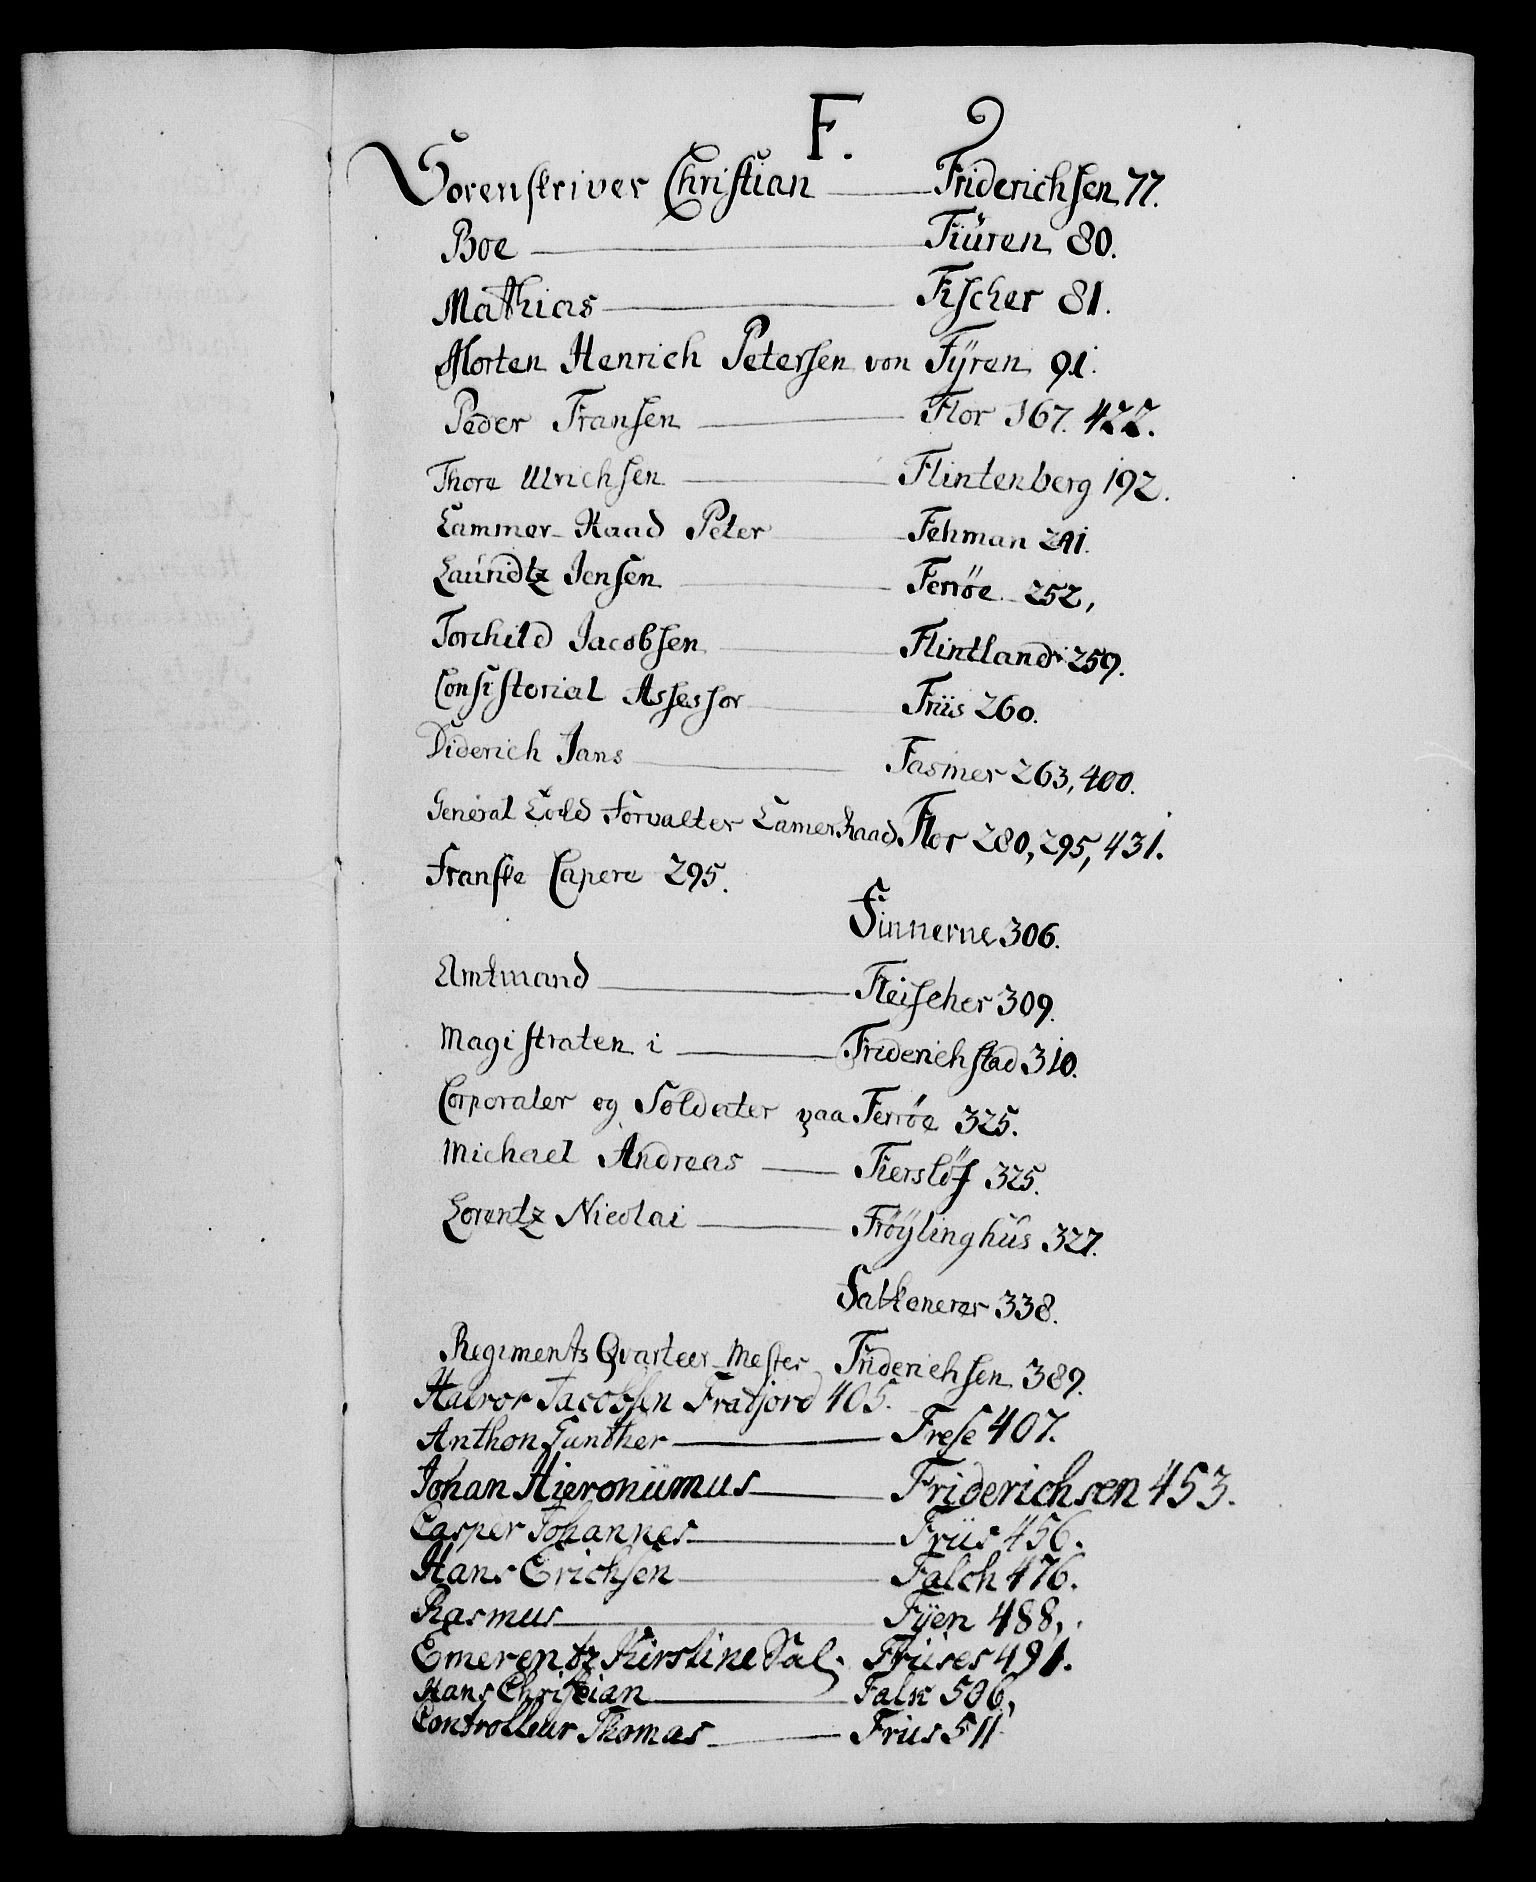 F.
Sorenskriver Christian — Friderichsen 77.
Boe — Fiüren 80.
Mathias — Fischer 81.
Morten Henrich Petersen von Fÿren 91.
Peder Fransen — Flor 167. 422.
Thore Ulrichsen — Flintenberg 192.
Cammer-Raad Peter — Fehman 241.
Lauridtz Jensen — Ferröe 252,
Torchild Jacobsen — Flintland 259.
Consistorial Assessor — Friis 260.
Diderich Jans — Fasmer 263, 400.
General Told Forvalter Camer Raad Flor 280, 295, 431.
Franske Capere 295.
Finnerne 306.
Amtmand — Fleischer 309.
Magistraten i — Friderichstad 310.
Corporaler og Soldater paa Ferröe 325.
Michael Andreas — Fierslöf 325.
Lorentz Nicolai — Fröÿlinghüs 327.
Falkenerer 338.
Regiments Qvarteer-Mester Friderichsen 389.
Halvor Jacobsen Frafjord 405.
Anthon Gunther — Frese 407.
Johan Hieronÿmus — Friderichsen 453.
Casper Johannes — Friis 456.
Hans Erichsen — Falch 476.
Rasmus — Fÿen 488,
Emerentz Kirstine Sal. Friises 491.
Hans Christian — Falk 506,
Controlleur Thomas — Friis 511